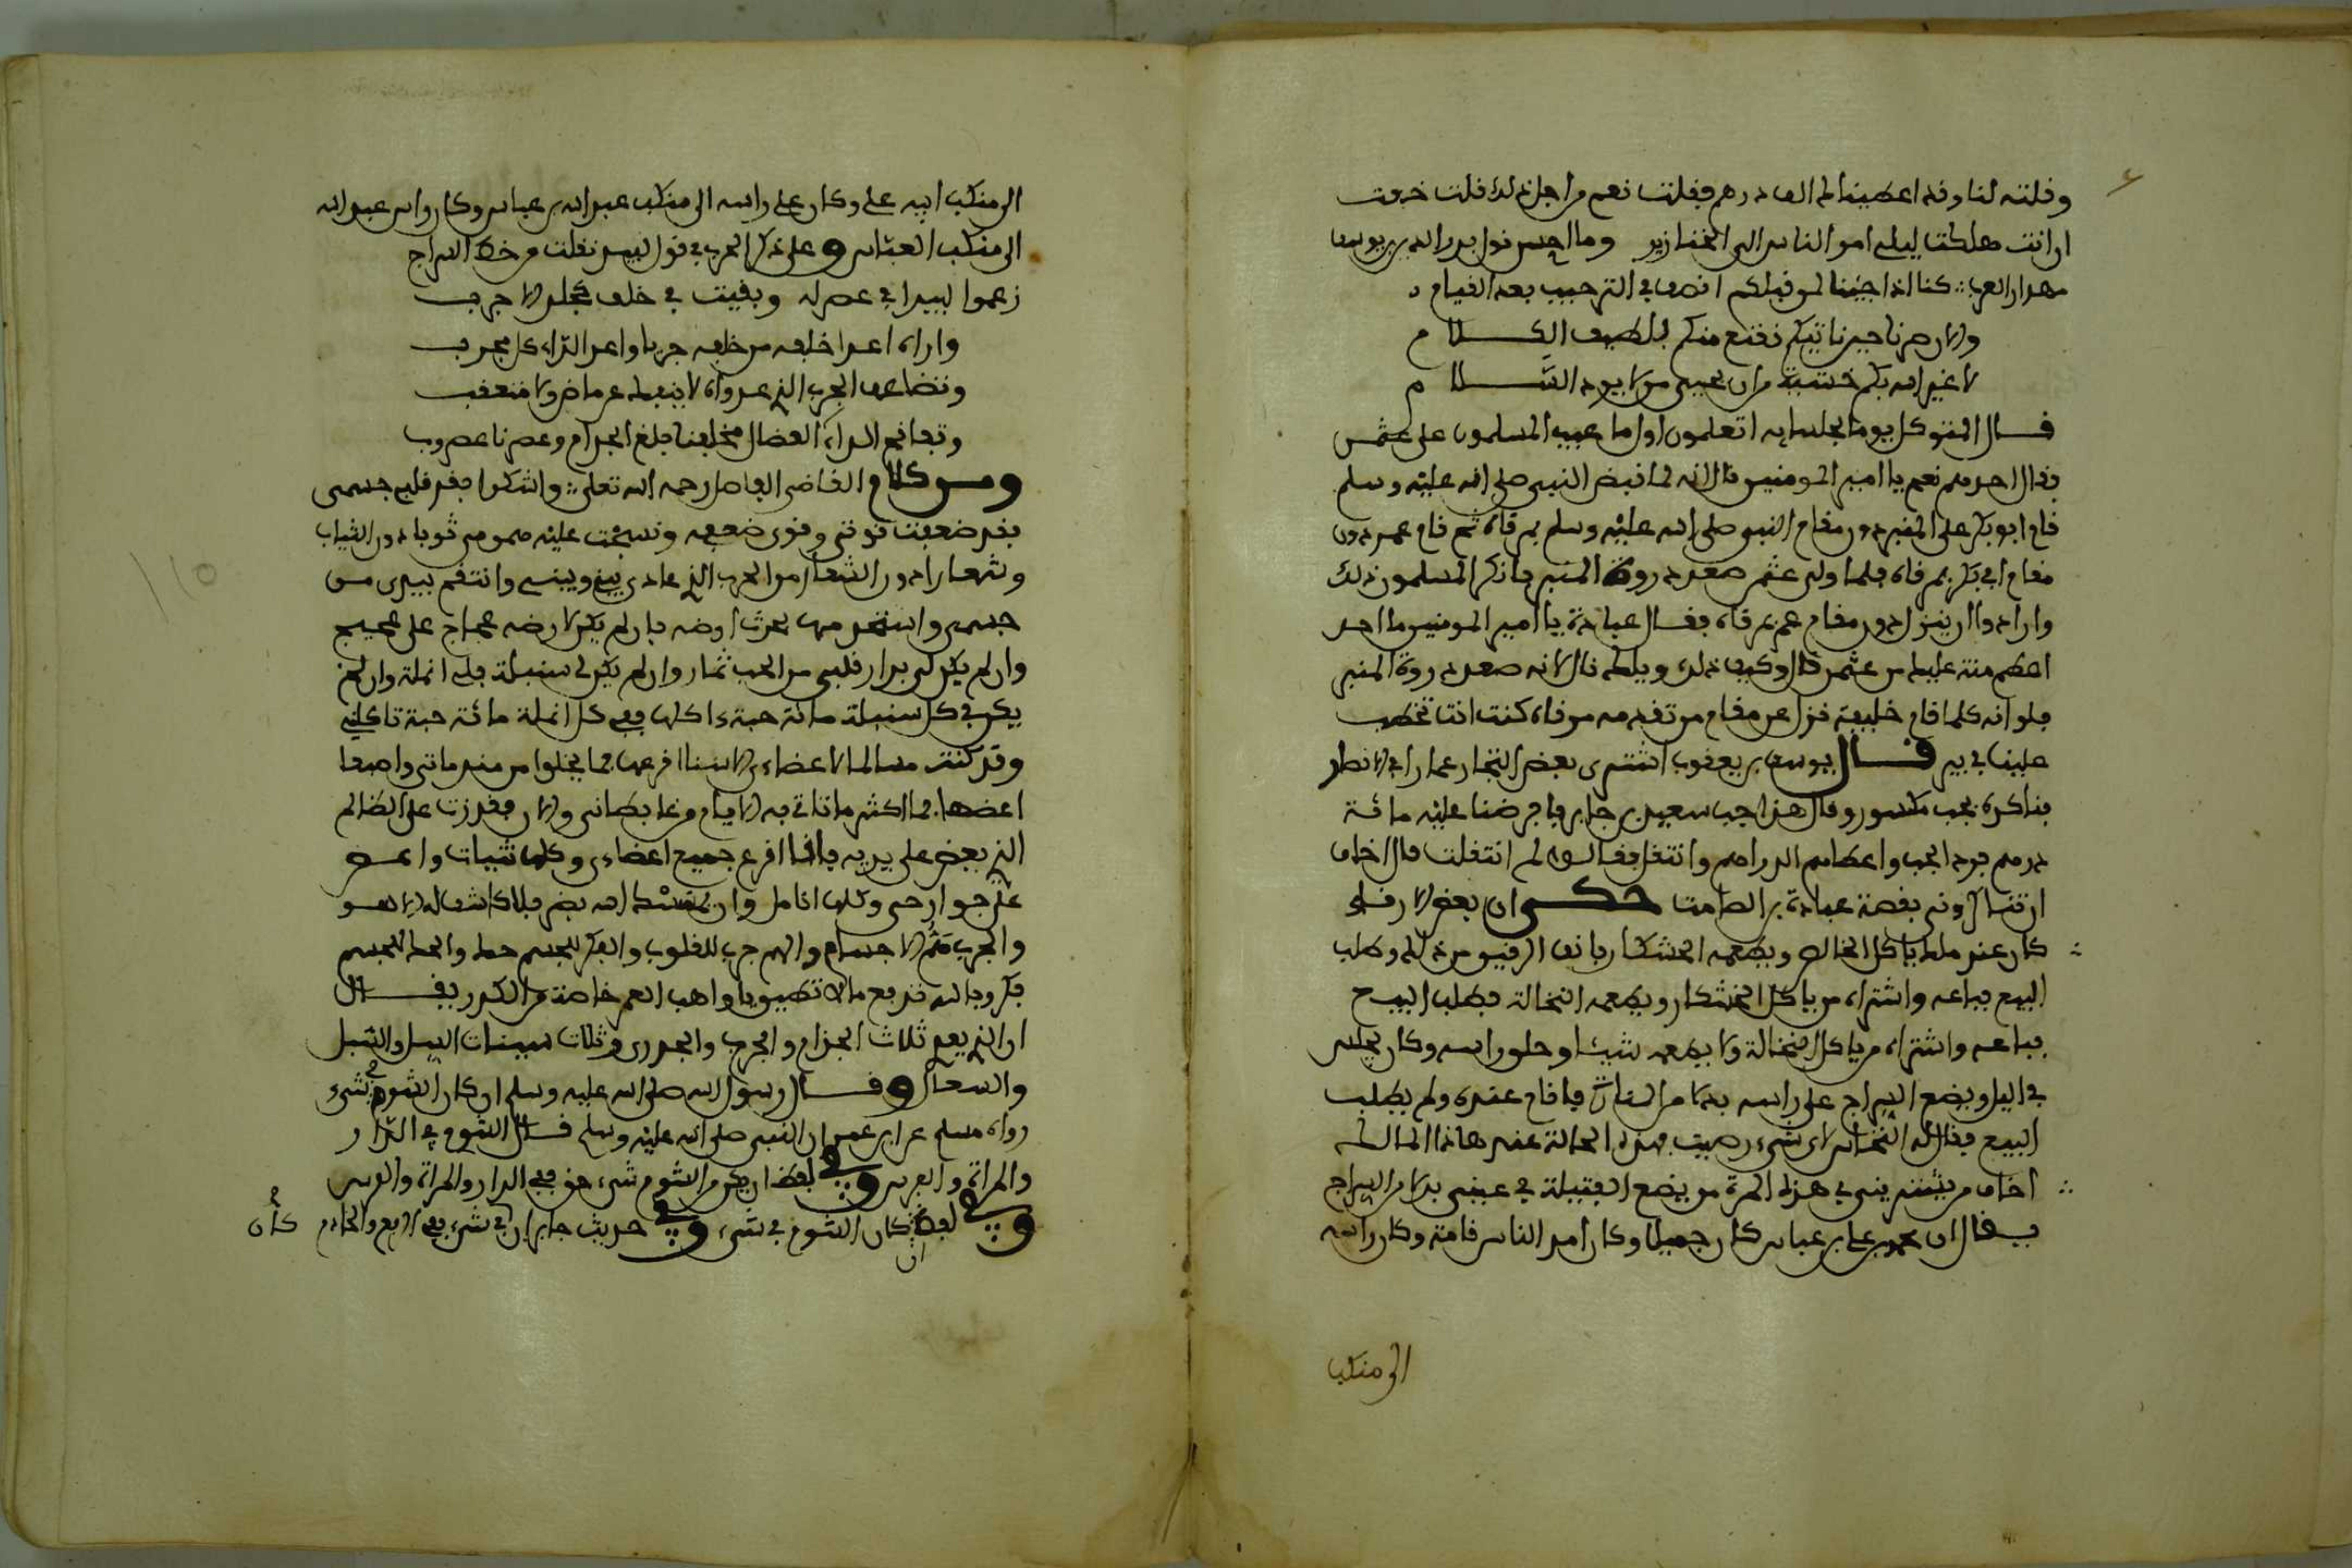 وقلته لنا وقد اعطيناك الف درهم فقلت نعم من اجل ذلك قلت خفت
ان انت هلكت ليلى امر الناس الى الخنازير وما احسن قول بدر الدين بن يوسف
مهدار العرب كنا اذا جئنا لمن قبلكم انصف في الترحيب بعد القيام
والان صرنا حين ناتيكم نقنع منكم بلطيف الكلام
لا غير الله بكم خشية من ان يجي من لا يرد السلام
قال المتوكل يوما لجلسايه اتعلمون اول ما عيب المسلمون على عثمن
فقال احدهم نعم يا امير المومنين قال انه لما قبض النبي صلى الله عليه وسلم
قام ابو بكر على المنبر دون مقام النبي صلى الله عليه وسلم بمرقاة ثم قام عمر دون
مقام ابي بكر بمرقاة فلما ولي عثمن صعد ذروة المنبر فانكر المسلمون ذلك
وارادوا ان ينزل دون مقام عمر بمرقاة فقال عبادة يا امير المومنين ما احد
اعظم منة عليك من عثمن قال وكيف ذلك ويلك قال لانه صعد ذروة المنبر
فلو انه كلما قام خليفة نزل عن مقام من تقدمه مرقاة كنت انت تخطب
علينا في بير قال يوسف بن يعقوب اشترى بعض التجار عمارا في الانطر
فناكره بجب مكسور وقال هذا جب سعيد بن جابر فاقرضنا عليه مائة
درهم فرد الجب واعطاهم الدراهم وانتقل فقالوا له لم انتقلت قال اخاف
ان تنسال وني بقصة عبادة بن الصامت حكى ان بعض الارقاء
كان عند ملك ياكل الخاص ويطعمه الخشكار فانف الرقيق من ذلك وطلب
البيع فباعه واشتراه من ياكل الخشكار ويطعمه النخالة فطلب البيع
فباعه واشتراه من ياكل النخالة ولا يطعمه شيئا وحلق راسه وكان يجلس
في اليل ويضع السراج على راسه بدلا من المنارة فاقام عنده ولم يطلب
البيع فقال له النخاس لاي شيء رضيت بهذه الحالة عند هاذا المالك
اخاف من يشتريني في هذه المرة من يضع الفتيلة في عيني بدلا من السراج
يقال ان محمد بن علي بن عباس كان جميلا وكان امد الناس قامة وكان راسه
الى منكب
الى منكب ابيه علي وكان علي راسه الى منكب عبد الله بن عباس وكان راس عبد الله
الى منكب العباس وعلى ذكر الجرب في قول لبيد نقلت من خط السراج
زعموا لبيدا في عصر له وبقيت في خلف كجلد الاجرب
واراه اعدا خلفه من خلفه جربا واعدا الداء كل مجرب
وتضاعف الجرب الذي عدواه لا ينفك عن ماض ولا متعقب
وتفاقم الداء العضال فخلفنا بلغ الجذام وعصرنا عصر وب
ومن كلام القاضي الفاضل رحمه الله تعلى واشكوا بعد قلبي جسمي
فقد ضعفت قوتي وقوى ضعفه ونسجت عليه همومي ثوبا دون الثياب
وشعارا دون الشعار من الجرب الذي عادى بيني وبيني وانتقم بيدي من
جسمي واستخدمها بحرث ارضه فان لم يكن لارضه عجاج على عجيج
وان لم يكن لي بدار قلبي من الحب ثمار وان لم يكن لي سنبلة فلي انملة وان لم
يكن في كل سنبلة مائة حبة اكلها ففي كل انملة مائة حبة تاكلني
وقد كنت مسالما لاعضاءي لاسننا اقرعها فما يخلوا من مندماتي واصبعا
اعضها فما اكثر ما تاتي به الايام من غايظاتي والان فقد زدت على الظالم
الذي يعض على يديه فانا اقرع جميع اعضاءي وكلها ثنيات واعض
على جوارحي وكلها انامل وان يمسسك الله بضر فلا كاشف له الا هو
والجرب هم الاجسام والهم جرب للقلوب والفكر للجسم حك والحك للجسم
فكر وبالله ندفع مالا نطيق يا واهب العمر خلصه من الكدر يقال
ان الذي يعدي ثلاث الجذام والجرب والجدري وثلاث سينات السل والسبل
والسعال وقال رسول الله صلى الله عليه وسلم ان كان الشوم في شيء
رواه مسلم عن ابن عمر ان النبي صلى الله عليه وسلم قال الشوم في الدار
والمراة والفرس وفي لفظ ان يكن من الشوم شيء حق ففي الدار والمراة والفرس
وفي لفظ ان كان الشوم في شيء وفي حديث جابر ان كان في شيء ففي الربع والخادم